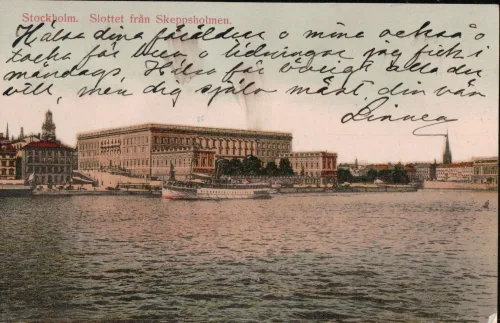 Stockholm. Slottet från Skeppsholmen.
Hälsa dina föräldrar o mine också o
tacka för brev o tidningar jag fick i
måndags. Hälsa för övrigt alla du
vill, men dig själv mäst din vän
Linnea